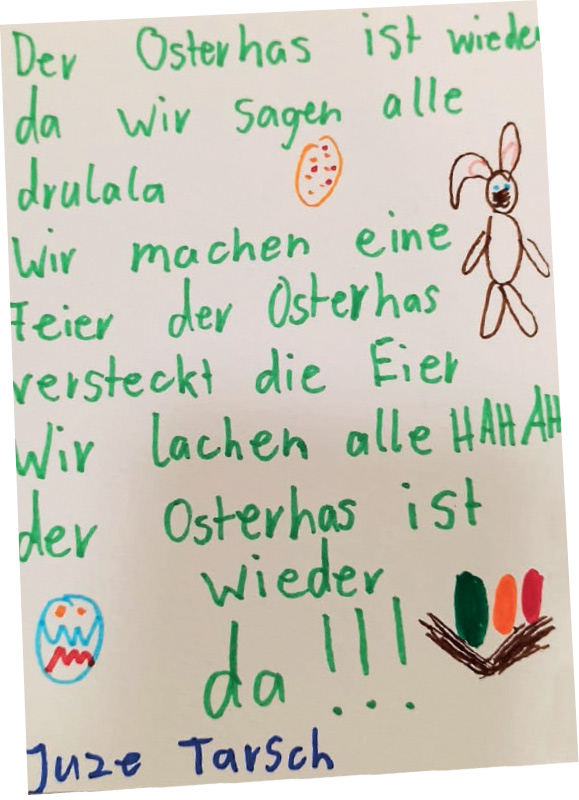 Der Osterhas ist wieder
da wir sagen alle
drulala
Wir machen eine
Feier der Osterhas
versteckt die Eier
Wir lachen alle HAHAH
der Osterhas ist
wieder
da !!!
Juze Tarsch